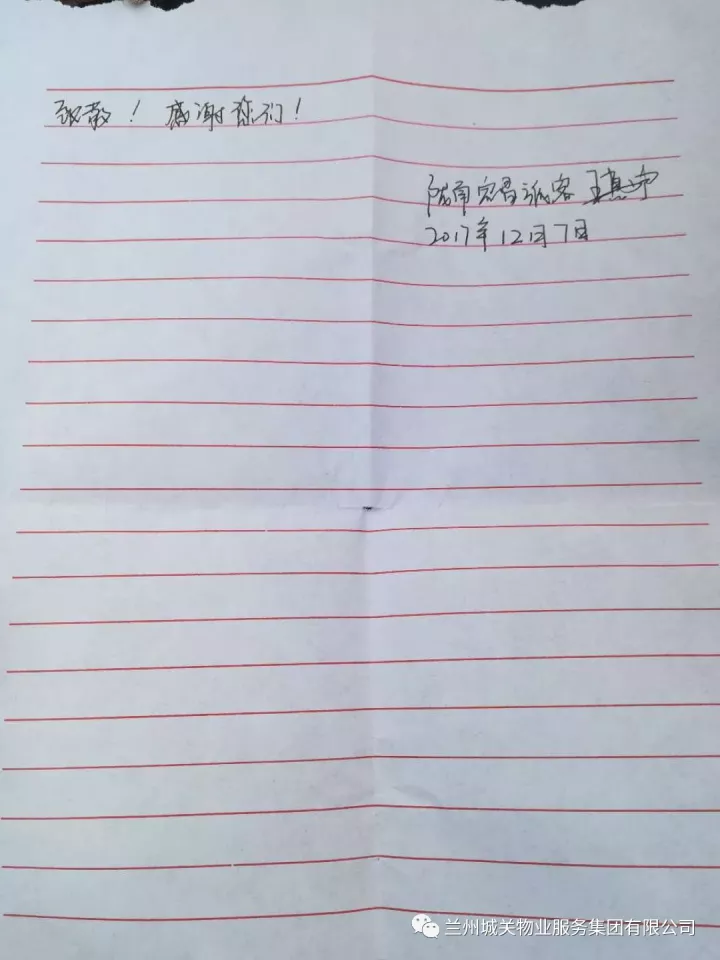 致敬！感谢你们！
陇南宕昌诚客 王惠宁
2017年12月7日
兰州城关物业服务集团有限公司